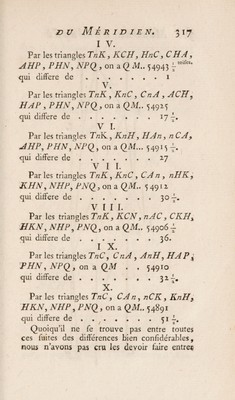 DU MÉRIDIEN. 317
IV.
Par les triangles TnK, KCH, HnC, CHA,
AHP, PHN, NPQ, on a QM.. 54943 1/2 toises.
qui differe de . . . . . . 1
V.
Par les triangles TnK, KnC, CnA, ACH,
HAP, PHN, NPQ, on a QM.. 54925
qui differe de . . . . . . 17 1/2.
VI.
Par les triangles TnK, KnH, HAn, nCA,
AHP, PHN, NPQ, on a QM... 54915 1/2.
qui differe de . . . . . . 27
VII.
Par les triangles TnK, KnC, CAn, nHK,
KHN, NHP, PNQ, on a QM.. 54912
qui differe de . . . . . . 30 1/2.
VIII.
Par les triangles TnK, KCN, nAC, CKH,
HKN, NHP, PNQ, on a QM.. 54906 1/2
qui differe de . . . . . . 36.
IX.
Par les triangles TnC, CnA, AnH, HAP,
PHN, NPQ, on a QM . . 54910
qui differe de . . . . . . 32 1/2.
X.
Par les triangles TnC, CAn, nCK, KnH,
HKN, NHP, PNQ, on a QM.. 54891
qui differe de . . . . . . 51 1/2.
Quoiqu'il ne se trouve pas entre toutes
ces suites des différences bien considérables,
nous n'avons pas cru les devoir faire entrer